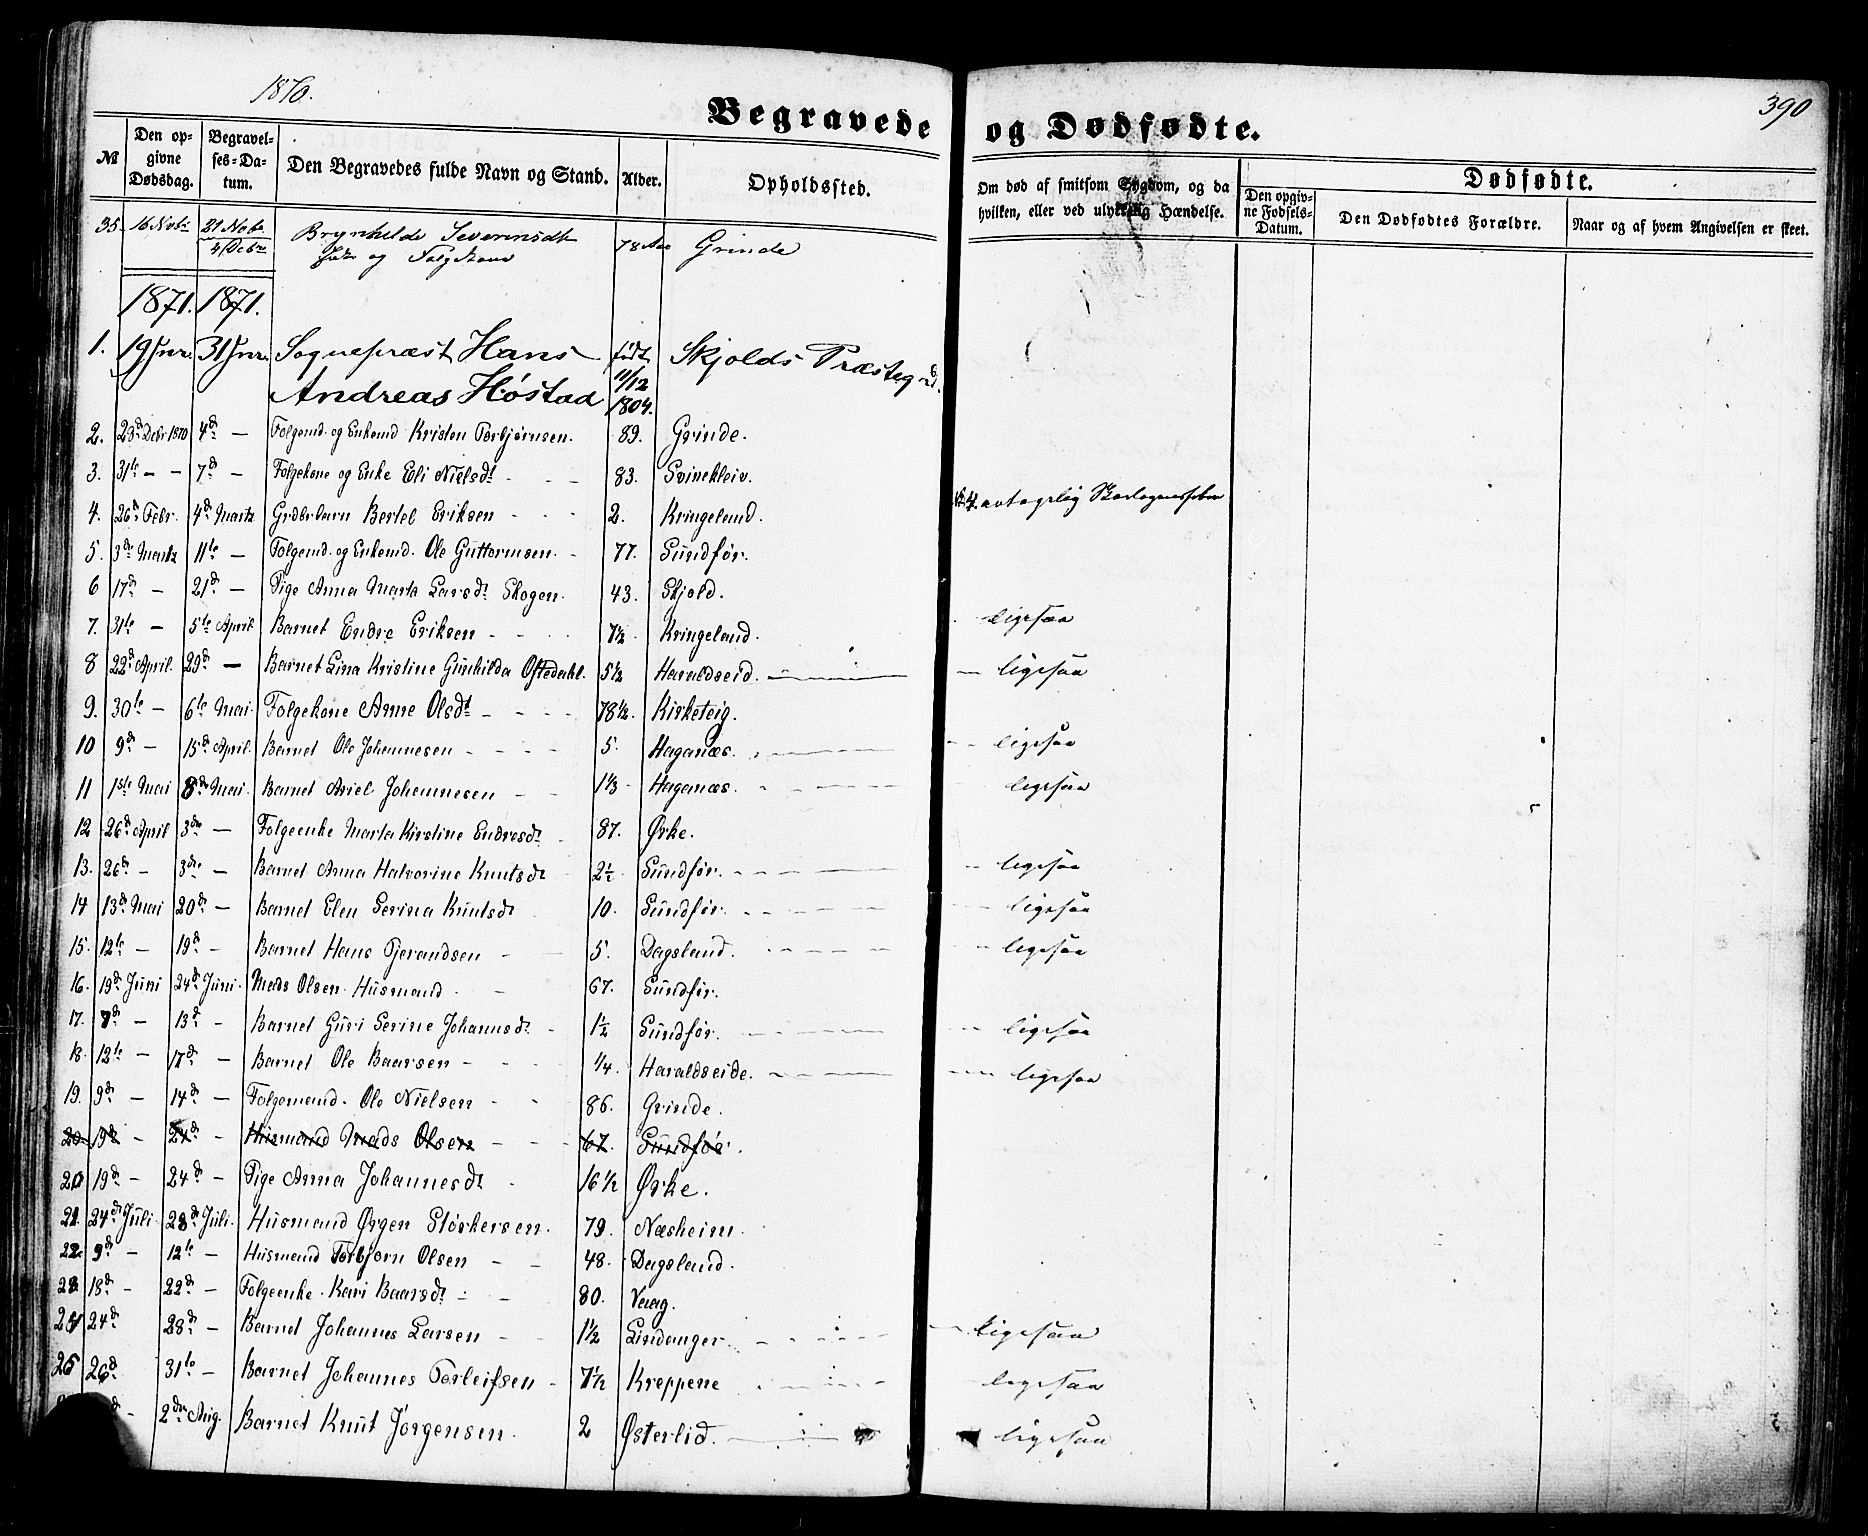 1870.
390
Begravede og Dødfødte.
№ Den opgivne Dødsdag. Begravelses-Datum. Den Begravedes fulde Navn og Stand. Alder. Opholdssted. Om død af smitsom Sygdom, og da hvilken, eller ved ulykkelig Hændelse. Dødfødte. Den opgivne Fødsels-Datum. Den Dødfødtes Forældre. Naar og af hvem Angivelsen er skeet.
35. 16 Novbr 21 Novbr Brynhilde Severinsdt 78 Aar Grinde
4 Decbr og Folgekone
1871. 1871.
1. 19 Jnr. 31 Jnr. Sognepræst Hans født Skjolds Præstegrd.
Andreas Høstad 11/12 1804.
2. 28d Debr 1870 4d — Folgemd. og Enkemd Kristen Torbjørnsen. 89. Grinde.
3. 31te — — 7d — Folgekone og Enke Eli Nielsdt - - - 83. Svinekleiv.
4. 26d Febr. 4d Martz Grdbrbarn Bertel Eriksen - - - 2. Kringeland. Skarlagensfeber
5. 3die Martz 11te — Folgemd. og Enkemd. Ole Guttormsen. - 77. Sundfør.
6 17d — 21d — Pige Anna Marta Larsdt Skogen. 43. Skjold.
7. 31te — 5te April Barnet Endre Eriksen - - - 7½ Kringeland. ligesaa
8 22d April. 29d — Barnet Lina Kristine Gunhilda Oftedahl. 5½ Haraldseid. — ligesaa
9. 30te — 6te Mai Folgekone Anne Olsdt - - - - 78½. Kirketeig.
10 9d — 15d April. Barnet Ole Johannesen - - - - 5. Haganæs. — ligesaa
11 1ste Mai 8d Mai. Barnet Ariel Johannesen - - 1⅓ - Haganæs. — ligesaa
12 26d April 3die — Folgeenke Marta Kirstine Endresdt - 87. Ørke.
13. 26d — 3die — Barnet Anna Halvorine Knutsdt 2½ Sundfør. — ligesaa
14 13d Mai 20d — Barnet Elen Serina Knutsdt 10. Sundfør. — ligesaa
15. 12te — 19d — Barnet Hans Tjerandsen - 5. Dagsland. — ligesaa
16. 19d Juni 24d Juni. Mads Olsen. Husmand. - 67. Sundfør.
17. 7d — 13d - Barnet Guri Serine Johannsdt - 1½ Sundfør. — ligesaa
18. 12te — 17d — Barnet Ole Baarsen - - - 1/4 Haraldseide. — ligesaa
19. 9d — 14d — Folgemand. Ole Nielsen - - 86. Grinde.
20 19d - 24d - Husmand Mads Olsen - - - 67. Sundfør.
20 19d - 24d — Pige Anna Johannesdt - 16½ Ørke.
21. 24d Juli. 28d Juli. Husmand Ørgen Størkersen. 79. Næsheim.
22. 9d - 12te — Husmand Torbjørn Olsen - - 48. Dagsland.
23 18d - 22d — Folgeenke. Kari Baarsdt - - 80. Vaag.
24 24d 28d — Barnet Johannes Larsen - - 1½ Lindanger. — ligesaa
25 26d 31te — Barnet Johannes Torleifsen - 7½ Kreppene — ligesaa
2den Aug. Barnet Knut Jørgensen. 2 Østerlid. — ligesaa